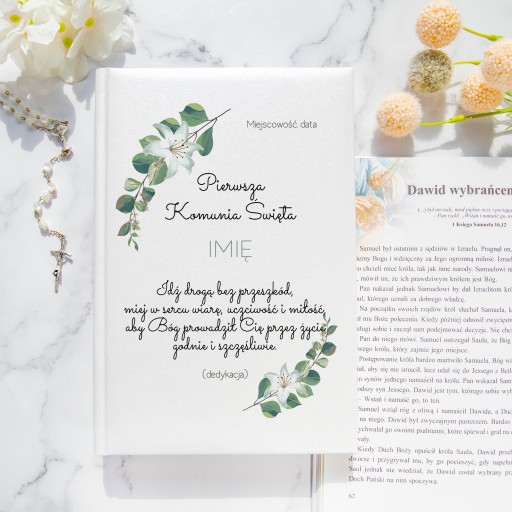 Miejscowość, data
Pierwsza
Komunia Święta
IMIĘ
Idź drogą bez przeszkód,
miej w sercu wiarę, uczciwość i miłość,
aby Bóg prowadził Cię przez życie
godnie i szczęśliwie.
(dedykacja)
Dawid wybrańcem
1 Księga Samuela 16,12
Samuel był ostatnim z sędziów w Izraelu. Pragnął on,
Bogu i wdzięczny za Jego ogromną miłość. Dlatego
to chcieli mieć króla, tak jak inne narody. Samuelowi
mówił im, że ich prawdziwym królem jest Bóg.
Pan nakazał jednak Samuelowi by dał Izraelitom
którego uznał za dobrego władcę.
Na początku swoich rządów król słuchał Samuela,
ku Boże polecenia. Kiedy później odnosił zwycięstwa
sługi sobie i zaczął sam podejmować decyzje. Nie
Pan do niego mówi. Samuel ostrzegał Saula, że Bóg
króla, który zajmie jego miejsce.
Postępowanie króla bardzo martwiło Samuela. Bóg
aby się nie smucił, lecz udał się do Jessego z
synów jednego namaścił na króla. Pan wskazał
od Jessego, Dawid jest tym, którego sobie
– Wstań i namaść go, to ten.
Samuel wziął róg z oliwą i namaścił Dawida, a
na niego. Dawid był zwyczajnym pasterzem. Bardzo
go swoimi psalmami, które śpiewał i grał na
Kiedy Duch Boży opuścił króla Saula, Dawid
dworze i przygrywał mu, by go pocieszyć, gdy
Saul jednak nie wiedział, że Dawid został
Duch Pański na nim spoczywa.
62